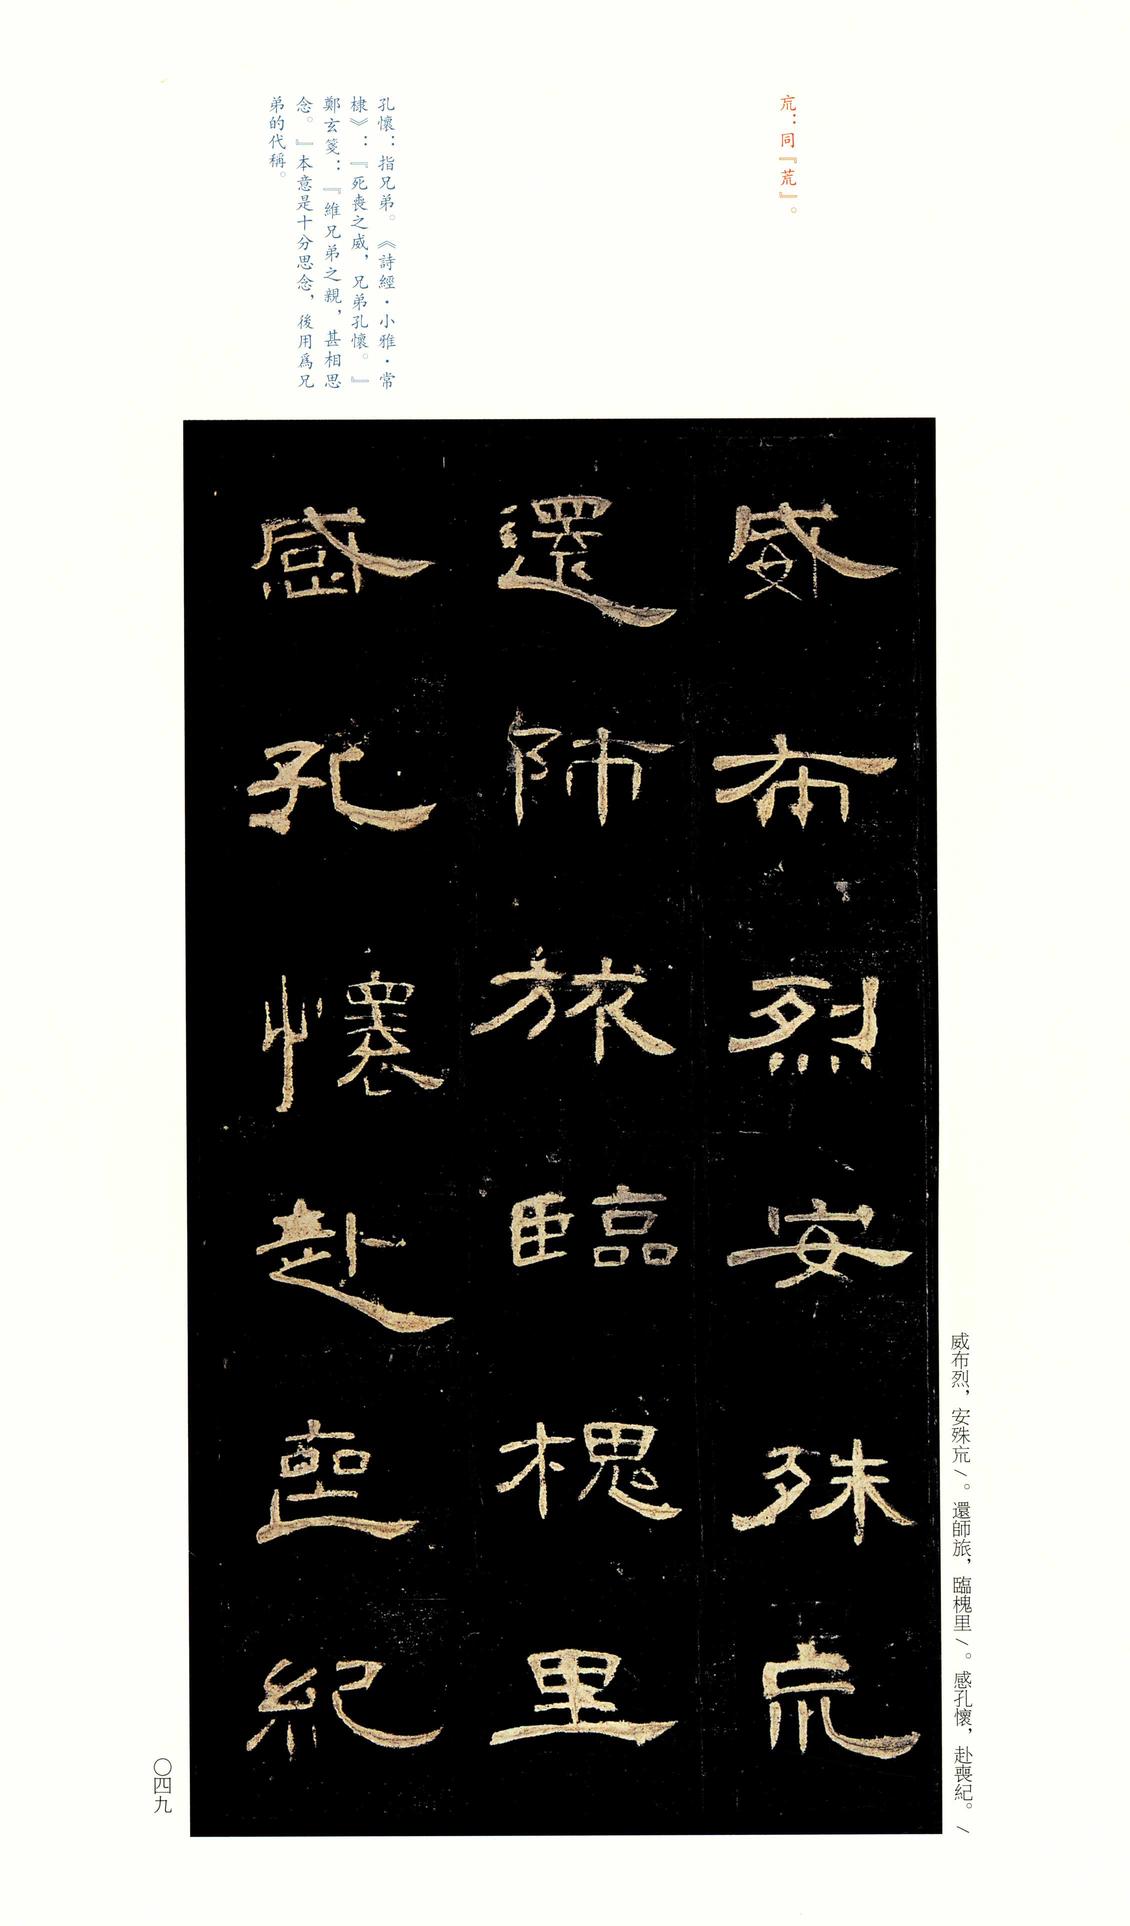 巟：同『荒』。
孔懷：指兄弟。《詩經·小雅·常
棣》：『死喪之威，兄弟孔懷。』
鄭玄箋：『維兄弟之親，甚相思
念。』本意是十分思念，後用爲兄
弟的代稱。
威布烈安殊巟
還師旅臨槐里
感孔懷赴喪紀
威布烈，安殊巟／。還師旅，臨槐里／。感孔懷，赴喪紀。／
〇四九